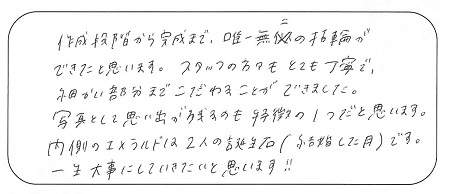 作成段階から完成まで、唯一無二の指輪が
できたと思います。スタッフの方々もとても丁寧で、
細かい部分までこだわることができました。
写真として思い出が残るのも特徴の1つだと思います。
内側のエメラルドは2人の誕生石(結婚した月)です。
一生大事にしていきたいと思います!!